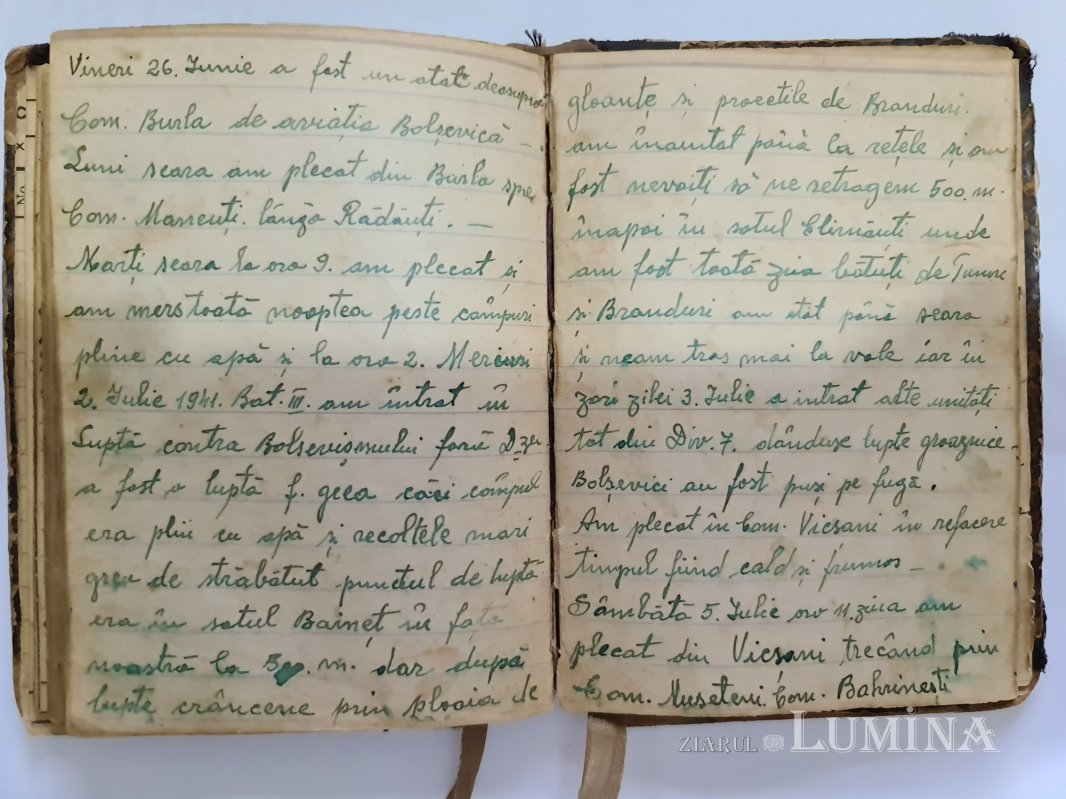 Vineri 26. Iunie a fost un atac deasupra
Com. Burla de aviația Bolșevică —
Luni seara am plecat din Burla spre
Com. Maneuți. lângă Rădăuți. —
Marți seara la ora 9. am plecat și
am mers toată nooptea peste câmpuri
pline cu apă și la ora 2. Mercuri
2. Iulie 1941. Bat. III. am întrat în
Luptă contra Bolșevișmului
a fost o luptă f. grea căci câmpul
era plin cu apă și recoltele mari
grea de străbătut punctul de luptă
era în satul Baineț în fața
noastră la m. dar după
lupte crâncene prin ploaia de
gloanțe și proectile de Branduri.
am înaintat până la rețele și am
fost nevoiți să ne retragem 500. m.
înapoi în satul Climăuți unde
am fost toată ziua bătuți de Tunuri
și Branduri am stat până seara
și neam tras mai la vale iar în
zori zilei 3. Iulie a intrat alte unități
tot din Div. 7. dânduse lupte groaznice.
Bolșevici au fost puși pe fugă.
Am plecat în Com. Vicsani în refacere
timpul fiind cald și frumos —
Sâmbătă 5. Iulie ora 11. ziua am
plecat din Vicșani trecând prin
Com. Museteni, Com. Bahrinești
ZIARUL LUMINA